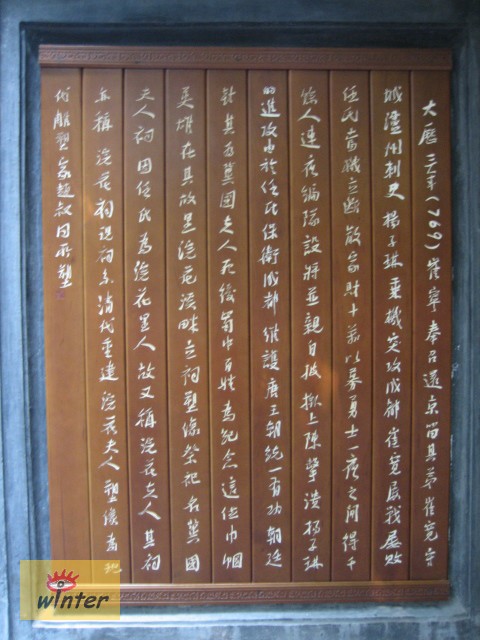 大历三年(769)崔宁奉召还京留其弟崔宽守
城泸州刺史杨子琳乘机突攻成都崔宽屡战屡败
任氏当机立断散家财十万以募勇士一夜之间得千
余人连夜编队设将并亲自披挂上阵击溃杨子琳
的进攻由于任氏保卫成都维护唐王朝统一有功朝廷
封其为冀国夫人死后蜀中百姓为纪念这位巾帼
英雄在其故里浣花溪畔立祠塑像祭祀名冀国
夫人祠因任氏为浣花里人故又称浣花夫人其祠
亦称浣花祠现祠系清代重建浣花夫人塑像为现
代雕塑家赵叔同所塑
winter